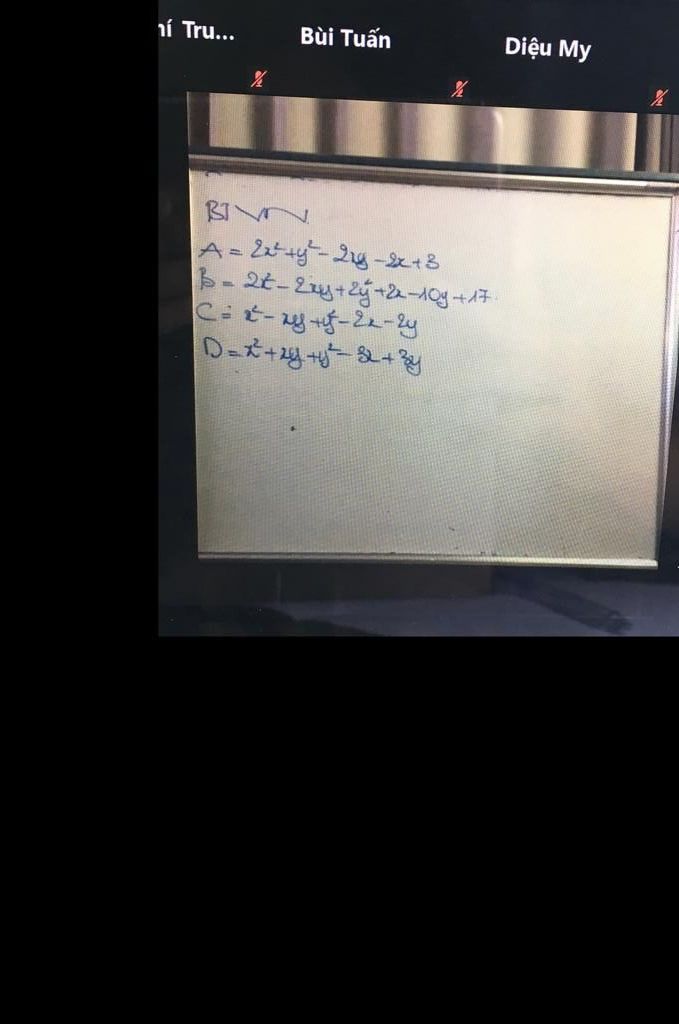 hí Tru...
Bùi Tuấn
Diệu My
A = 2x² + y² - 2xy - 2x + 3
B = 2x² - 2xy + 2y² + 2x - 10y + 17.
C = x² - xy + y² - 2x - 2y
D = x² + xy + y² - 3x + 3y